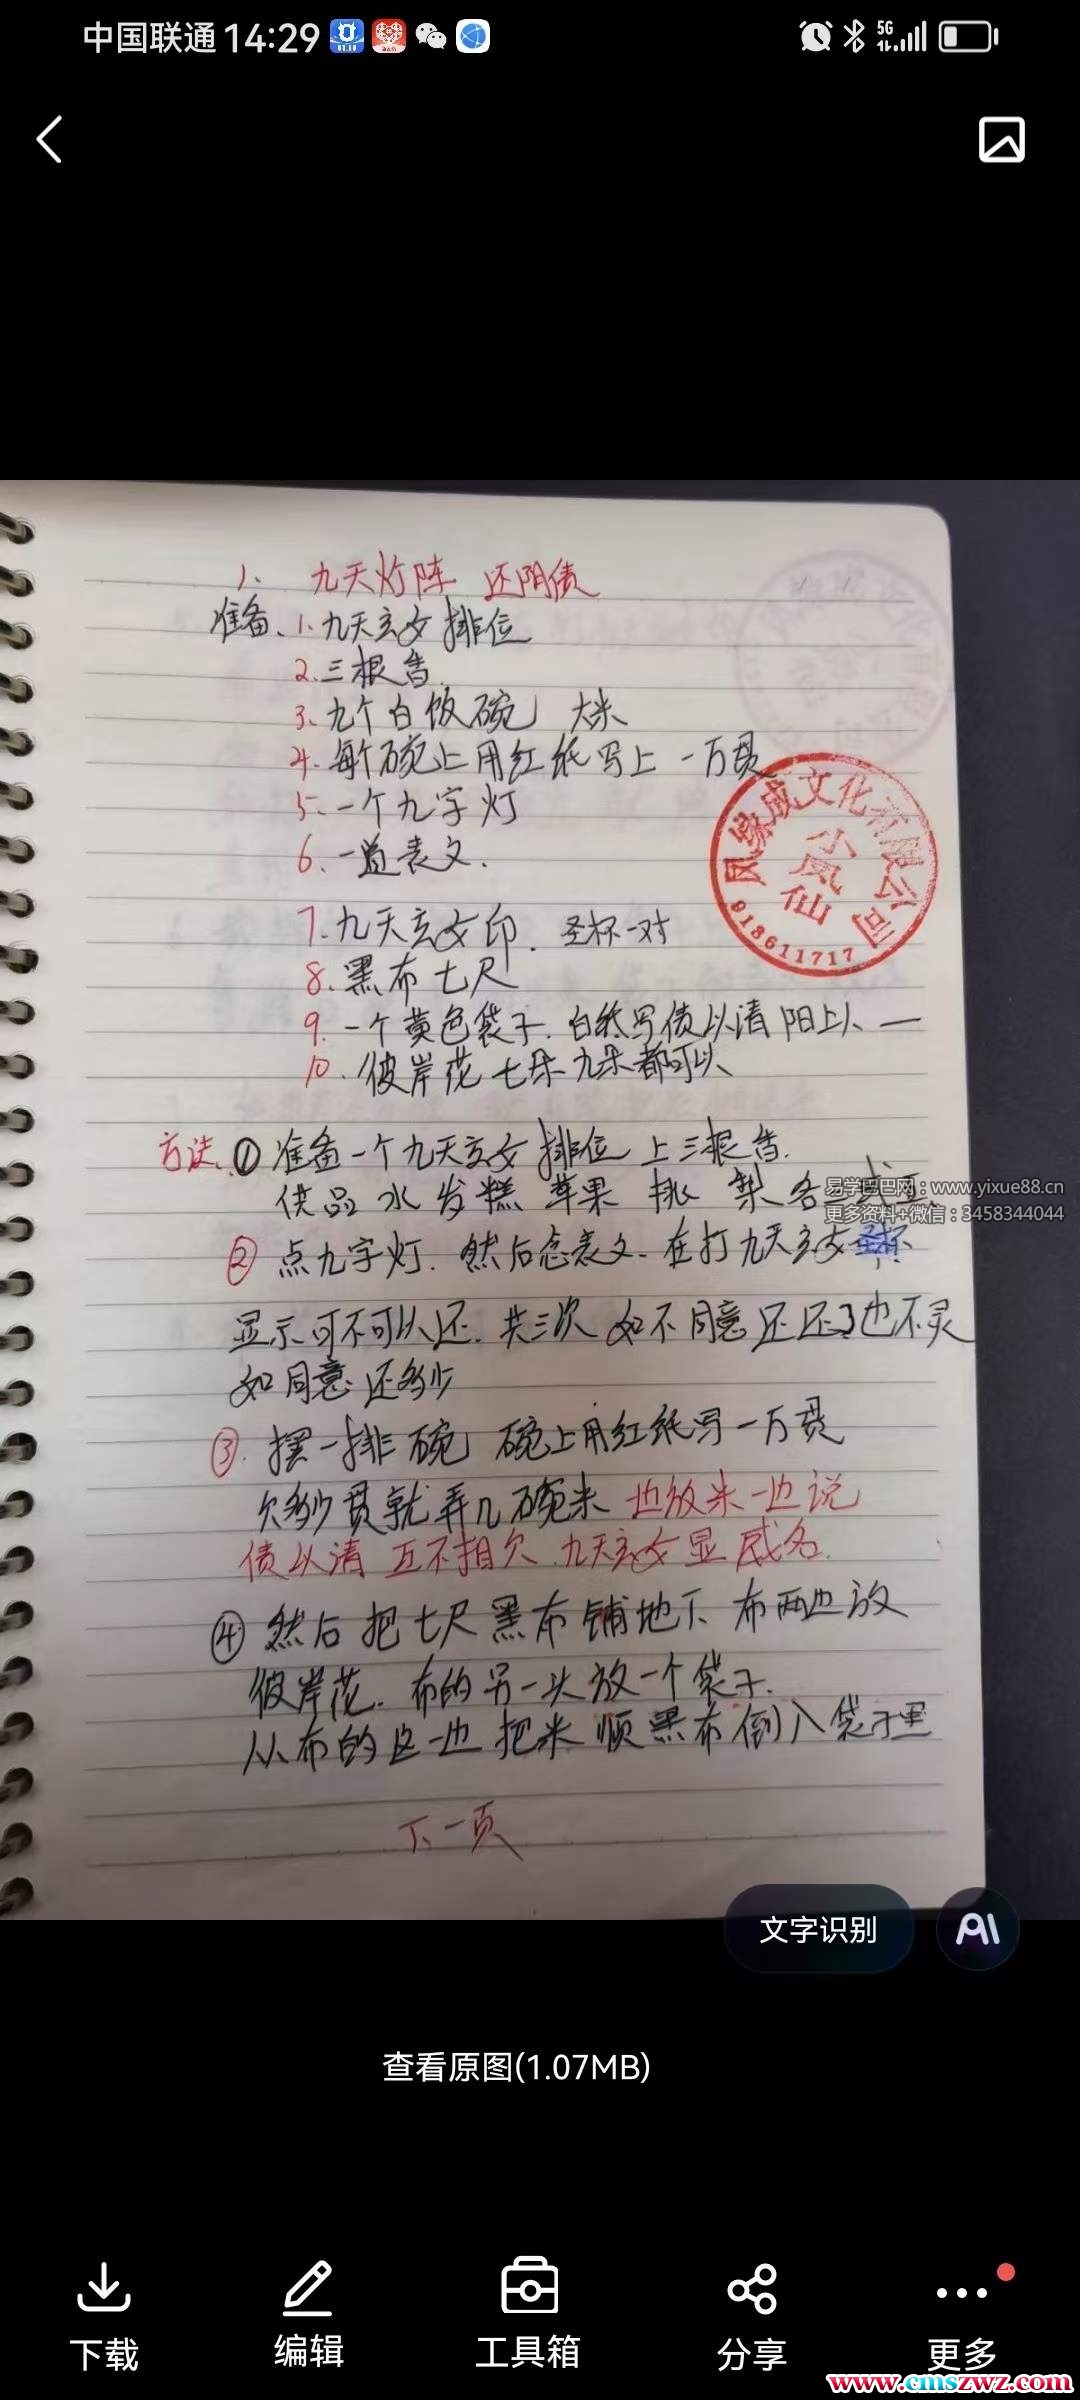 中国联通 14:29
5G
1、 九天灯阵 还阴债
准备、1.九天玄女排位
2.三根香.
3、九个白饭碗 大米
4.每个碗上用红纸写上一万贯
5、一个九字灯
6.一道表文.
7.九天玄女印. 圣杯一对
8.黑布七尺
9.一个黄色袋子.白纸写债以清 阳上人 —
10.彼岸花 七朵九朵都可以
方法、①准备一个九天玄女排位 上三根香.
供品 水 发糕 苹果 桃 梨 各三
② 点九字灯. 然后念表文. 在打九天玄女圣杯
显示可不可以还.共三次 如不同意还还了也不灵
如同意还多少
③. 摆一排碗 碗上用红纸写一万贯
欠多少贯就弄几碗米 边放米一边说
债以清 互不相欠.九天玄女显威名.
④ 然后把七尺黑布铺地下 布两边放
彼岸花.布的另一头放一个袋子.
从布的这一边把米顺黑布倒入袋子里
下一页
凤缘成文化有限公司
小凤仙
918611717
易学巴巴网：www.yixue88.cn
更多资料+微信：3458344044
文字识别
AI
查看原图(1.07MB)
下载 编辑 工具箱 分享 更多
www.cmszwz.com